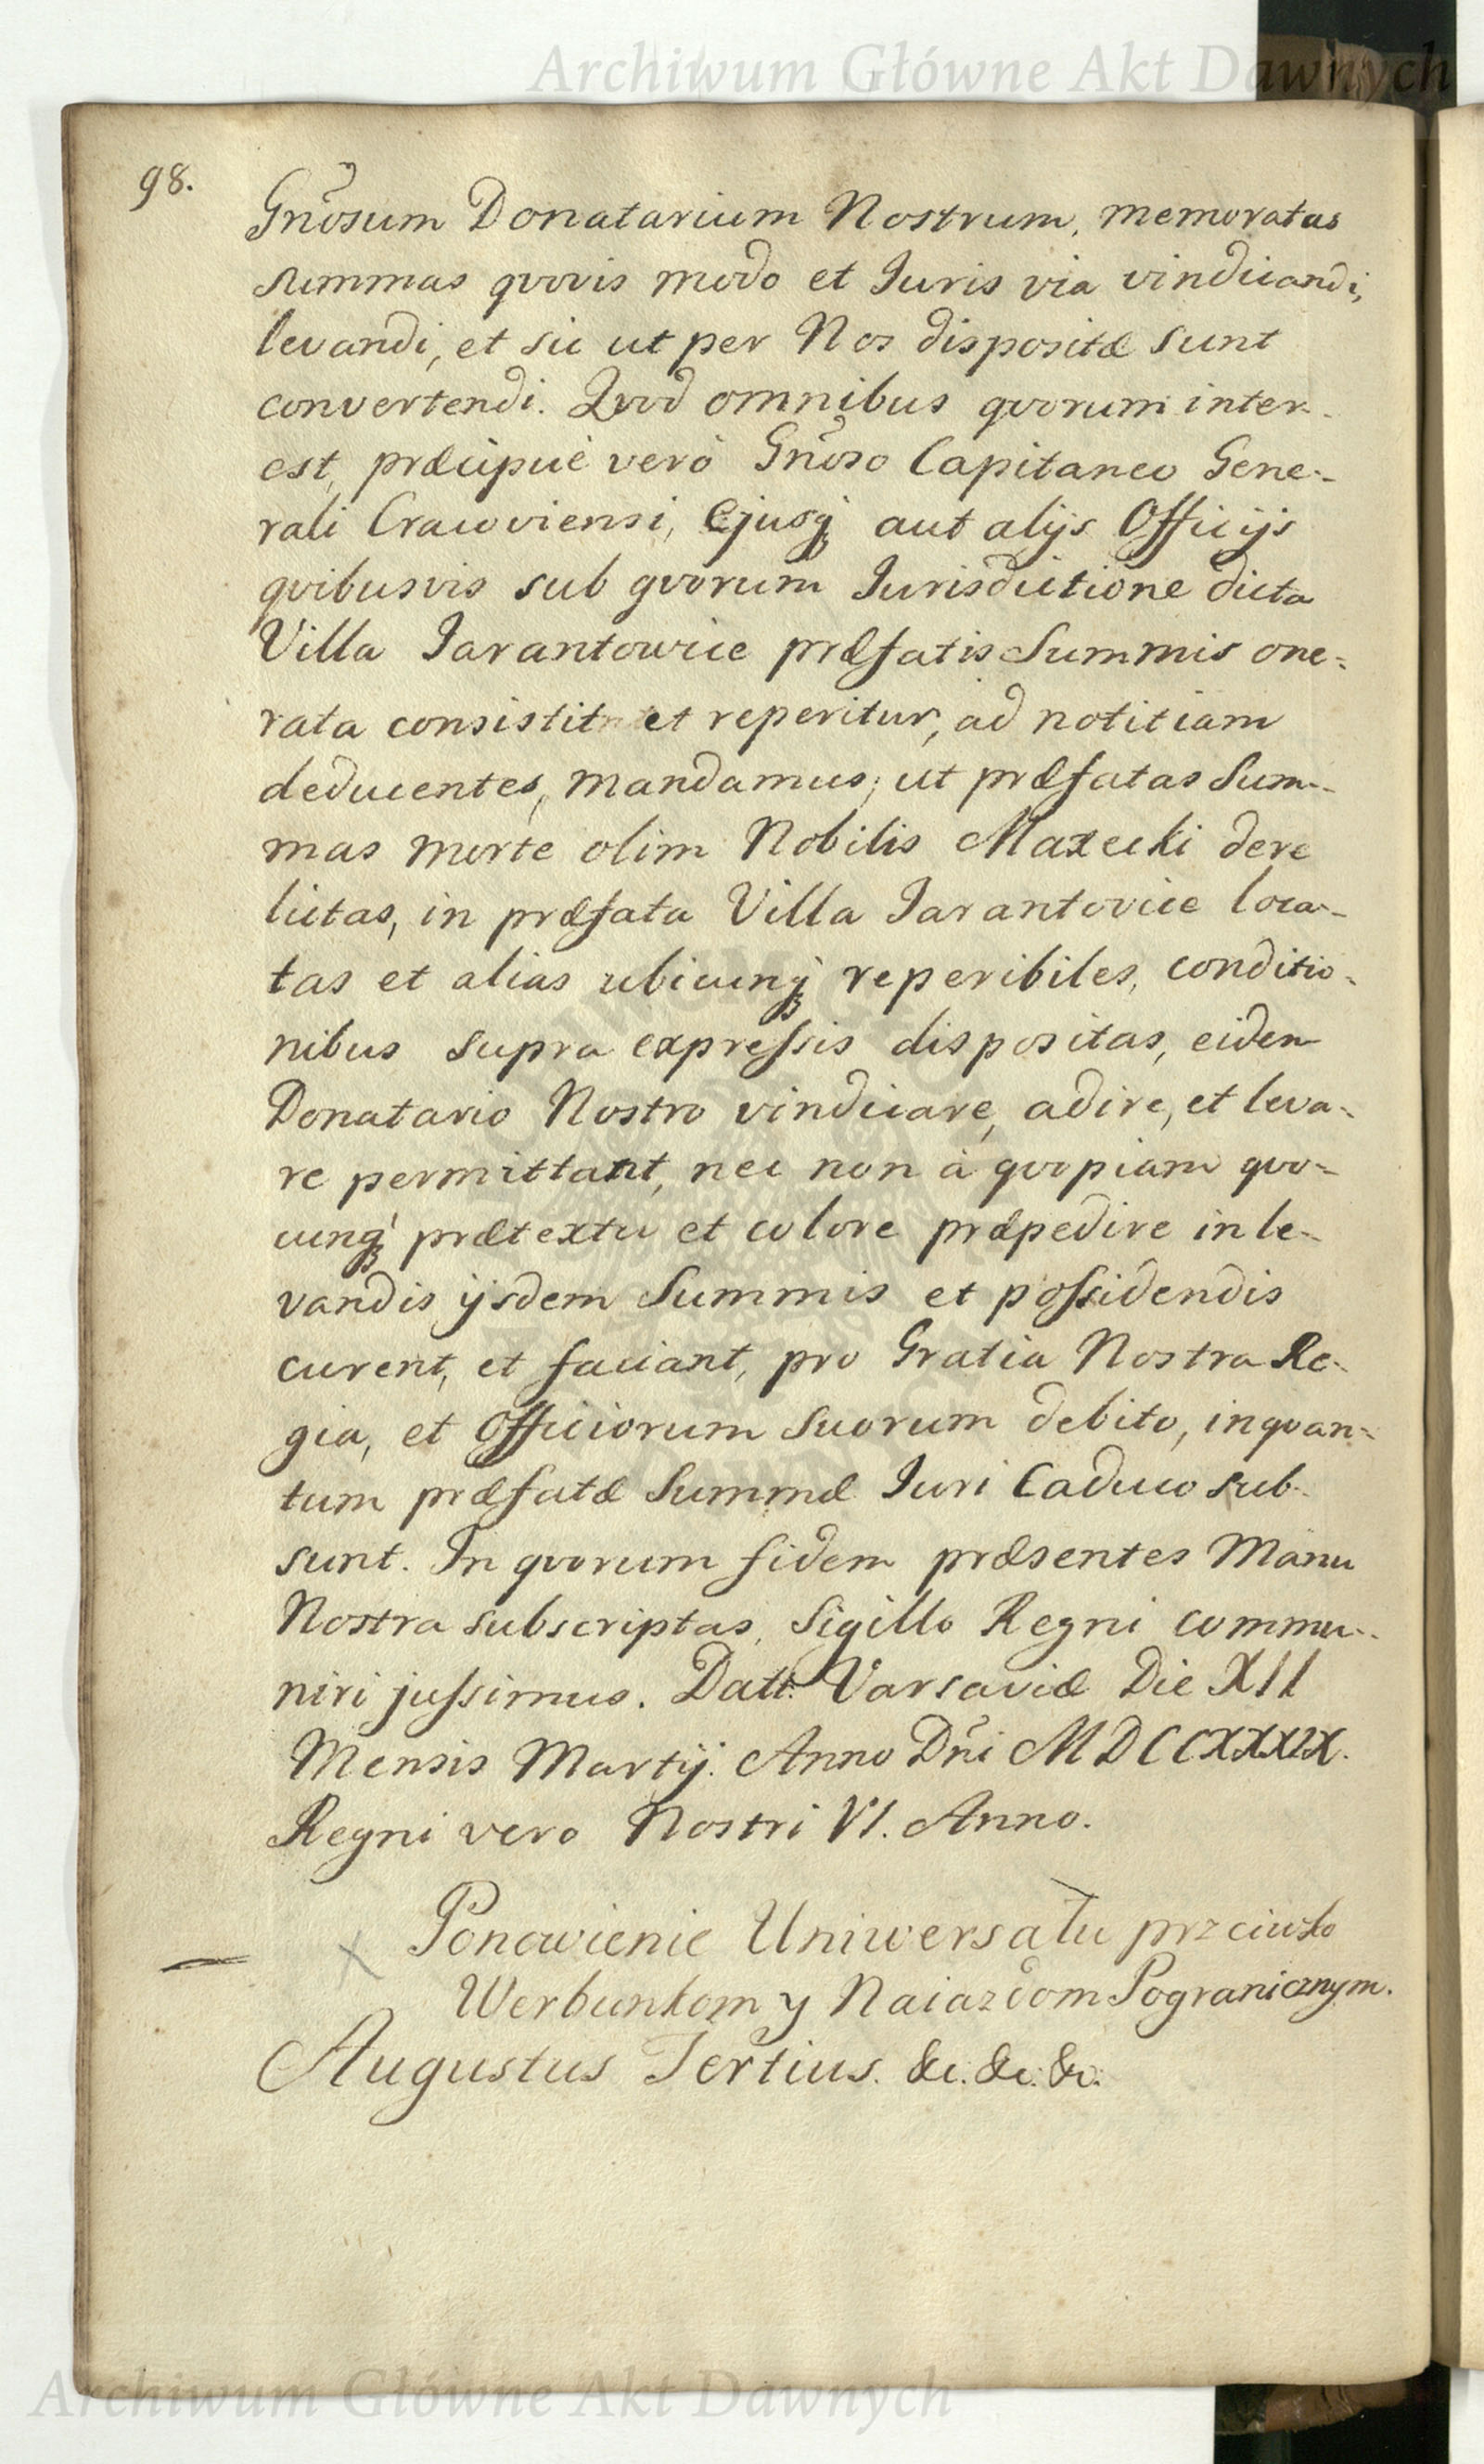 Archiwum Główne Akt Dawnych
98.
Gnõsum Donatarium Nostrum, memoratas
summas qvovis modo et Iuris via vindicandi,
levandi, et sic ut per Nos dispositæ sunt
convertendi. Qvod omnibus qvorum inter-
est, præcipuè verò Gnõso Capitaneo Gene-
rali Cracoviensi, Ejusq́; aut alijs Officijs
qvibusvis sub qvorum Iurisdictione dicta
Villa Jarantowice præfatis Summis one-
rata consistit et reperitur, ad notitiam
deducentes, mandamus; ut præfatas Sum-
mas morte olim Nobilis Maxecki dere
lictas, in præfata Villa Jarantovice loca-
tas et alias ubicunq́; reperibiles, conditio-
nibus supra expressis dispositas, eidem
Donatario Nostro vindicare, adire, et leva-
re permittant, nec non à qvopiam qvo-
cunq́; prætextu et colore præpedire in le-
vandis ijsdem Summis et possidendis
curent, et faciant, pro Gratia Nostra Re-
gia, et Officiorum suorum debito, inqvan-
tum præfatæ Summæ Iuri Caduco sub-
sunt. In qvorum fidem præsentes Manu
Nostra subscriptas, Sigillo Regni commu-
niri jussimus. Datt: Varsaviæ Die XII
Mensis Martij. Anno Dñi MDCCXXXIX.
Regni vero Nostri VI. Anno.
Ponowienie Uniwersału przeciwko
Werbunkom y Naiazdom Pogranicznym.
Augustus Tertius. &c. &c. &c.
Archiwum Główne Akt Dawnych